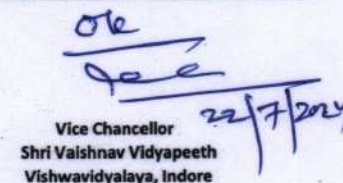 Ok
22/7/2024
Vice Chancellor
Shri Vaishnav Vidyapeeth
Vishwavidyalaya, Indore